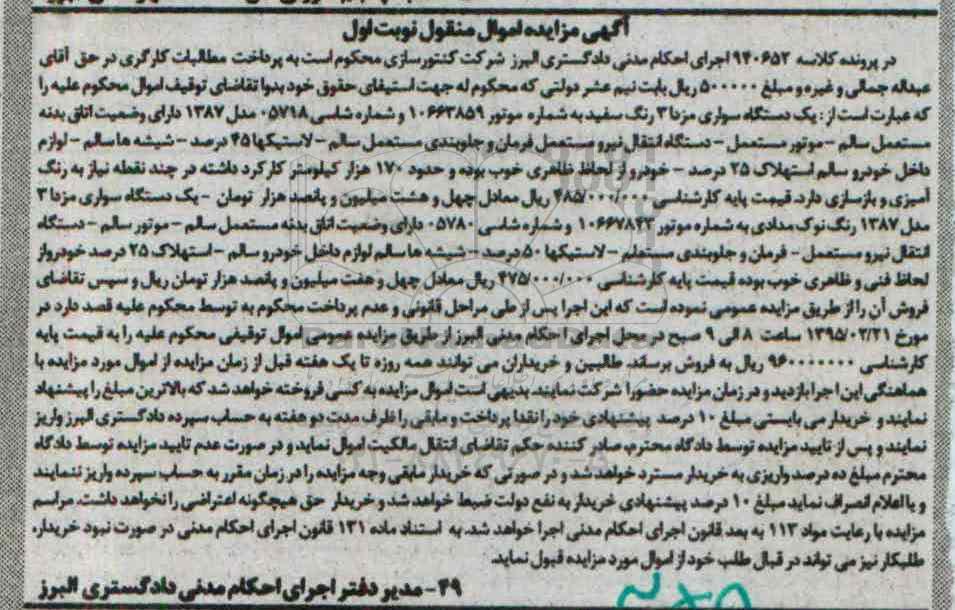 آگهی مزایده اموال منقول نوبت اول
در پرونده کلاسه ۹۴۰۶۵۲ اجرای احکام مدنی دادگستری البرز شرکت کنتورسازی محکوم است به پرداخت مطالبات کارگری در حق آقای
عبداله جمالی و غیره و مبلغ ۵۰۰۰۰۰ ریال بابت نیم عشر دولتی که محکوم له جهت استیفای حقوق خود بدوا تقاضای توقیف اموال محکوم علیه را
که عبارت است از: یک دستگاه سواری مزدا ۳ رنگ سفید به شماره موتور ۱۰۶۶۳۸۵۹ و شماره شاسی ۰۵۷۱۸ مدل ۱۳۸۷ دارای وضعیت اتاق بدنه
مستعمل سالم - موتور مستعمل - دستگاه انتقال نیرو مستعمل فرمان و جلوبندی مستعمل سالم - لاستیکها ۴۵ درصد - شیشه ها سالم - لوازم
داخل خودرو سالم استهلاک ۲۵ درصد - خودرو از لحاظ ظاهری خوب بوده و حدود ۱۷۰ هزار کیلومتر کارکرد داشته در چند نقطه نیاز به رنگ
آمیزی و بازسازی دارد. قیمت پایه کارشناسی ۴۸۵/۰۰۰/۰۰۰ ریال معادل چهل و هشت میلیون و پانصد هزار تومان - یک دستگاه سواری مزدا ۳
مدل ۱۳۸۷ رنگ نوک مدادی به شماره موتور ۱۰۶۶۷۸۲۲ و شماره شاسی ۰۵۷۸۰ دارای وضعیت اتاق بدنه مستعمل سالم - موتور سالم - دستگاه
انتقال نیرو مستعمل - فرمان و جلوبندی مستعلم - لاستیکها ۵۰ درصد - شیشه ها سالم لوازم داخل خودرو سالم - استهلاک ۲۵ درصد خودرو از
لحاظ فنی و ظاهری خوب بوده قیمت پایه کارشناسی ۴۷۵/۰۰۰/۰۰۰ ریال معادل چهل و هفت میلیون و پانصد هزار تومان ریال و سپس تقاضای
فروش آن را از طریق مزایده عمومی نموده است که این اجرا پس از طی مراحل قانونی و عدم پرداخت محکوم به توسط محکوم علیه قصد دارد در
مورخ ۱۳۹۵/۰۲/۲۱ ساعت ۸ الی ۹ صبح در محل اجرای احکام مدنی البرز از طریق مزایده عمومی اموال توقیفی محکوم علیه را به قیمت پایه
کارشناسی ۹۶۰۰۰۰۰۰۰ ریال به فروش برساند. طالبین و خریداران می توانند همه روزه تا یک هفته قبل از زمان مزایده از اموال مورد مزایده با
هماهنگی این اجرا بازدید و در زمان مزایده حضورا شرکت نمایند. بدیهی است اموال مزایده به کسی فروخته خواهد شد که بالاترین مبلغ را پیشنهاد
نمایند و خریدار می بایستی مبلغ ۱۰ درصد پیشنهادی خود را نقدا پرداخت و مابقی را ظرف مدت دو هفته به حساب سپرده دادگستری البرز واریز
نمایند و پس از تایید مزایده توسط دادگاه محترم، صادر کننده حکم تقاضای انتقال مالکیت اموال نماید و در صورت عدم تایید مزایده توسط دادگاه
محترم مبلغ ده درصد واریزی به خریدار مسترد خواهد شد و در صورتی که خریدار مابقی وجه مزایده را در زمان مقرر به حساب سپرده واریز ننمایند
و یا اعلام انصراف نماید مبلغ ۱۰ درصد پیشنهادی خریدار به نفع دولت ضبط خواهد شد و خریدار حق هیچگونه اعتراضی را نخواهد داشت. مراسم
مزایده با رعایت مواد ۱۱۳ به بعد قانون اجرای احکام مدنی اجرا خواهد شد. به استناد ماده ۱۳۱ قانون اجرای احکام مدنی در صورت نبود خریدار،
طلبکار نیز می تواند در قبال طلب خود از اموال مورد مزایده قبول نماید.
۴۹- مدیر دفتر اجرای احکام مدنی دادگستری البرز